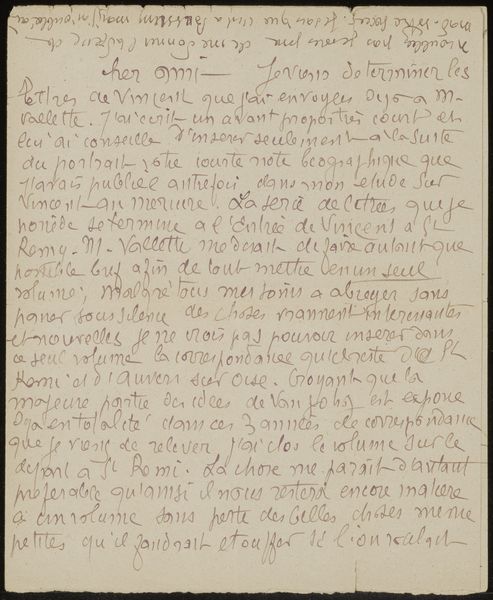 cher ami — Je viens de terminer les
lettres de Vincent que j'ai envoyées deja a M.
Vallette. J'ai ecrit un avant propos très court et
lui ai conseillé d'inserer seulement à la suite
du portrait votre courte note biographique que
j'avais publiée autrefois dans mon etude sur
Vincent au mercure. La serie de lettres que je
possède se termine a l'Entrée de Vincent a St
Remy. M. Vallette me disait de faire autant que
possible bref afin de tout mettre en un seul
volume, malgré tous mes soins a abreger sans
passer sous silence des choses vraiment interessantes
et nouvelles je ne crois pas pouvoir inserer dans
ce seul volume la correspondance qui date de St
Remi et d'Auvers sur Oise. Croyant que la
majeure partie des idées de Van Gogh est exposée
deja en totalité dans ces 3 années de correspondance
que je viens de relever j'ai clos le volume sur le
depart a St Remi. La chose me parait d'autant
preferable qu'ainsi il nous restera encore matière
à un volume sans perte des belles choses meme
petites qu'il faudrait etouffer si l'on voulait